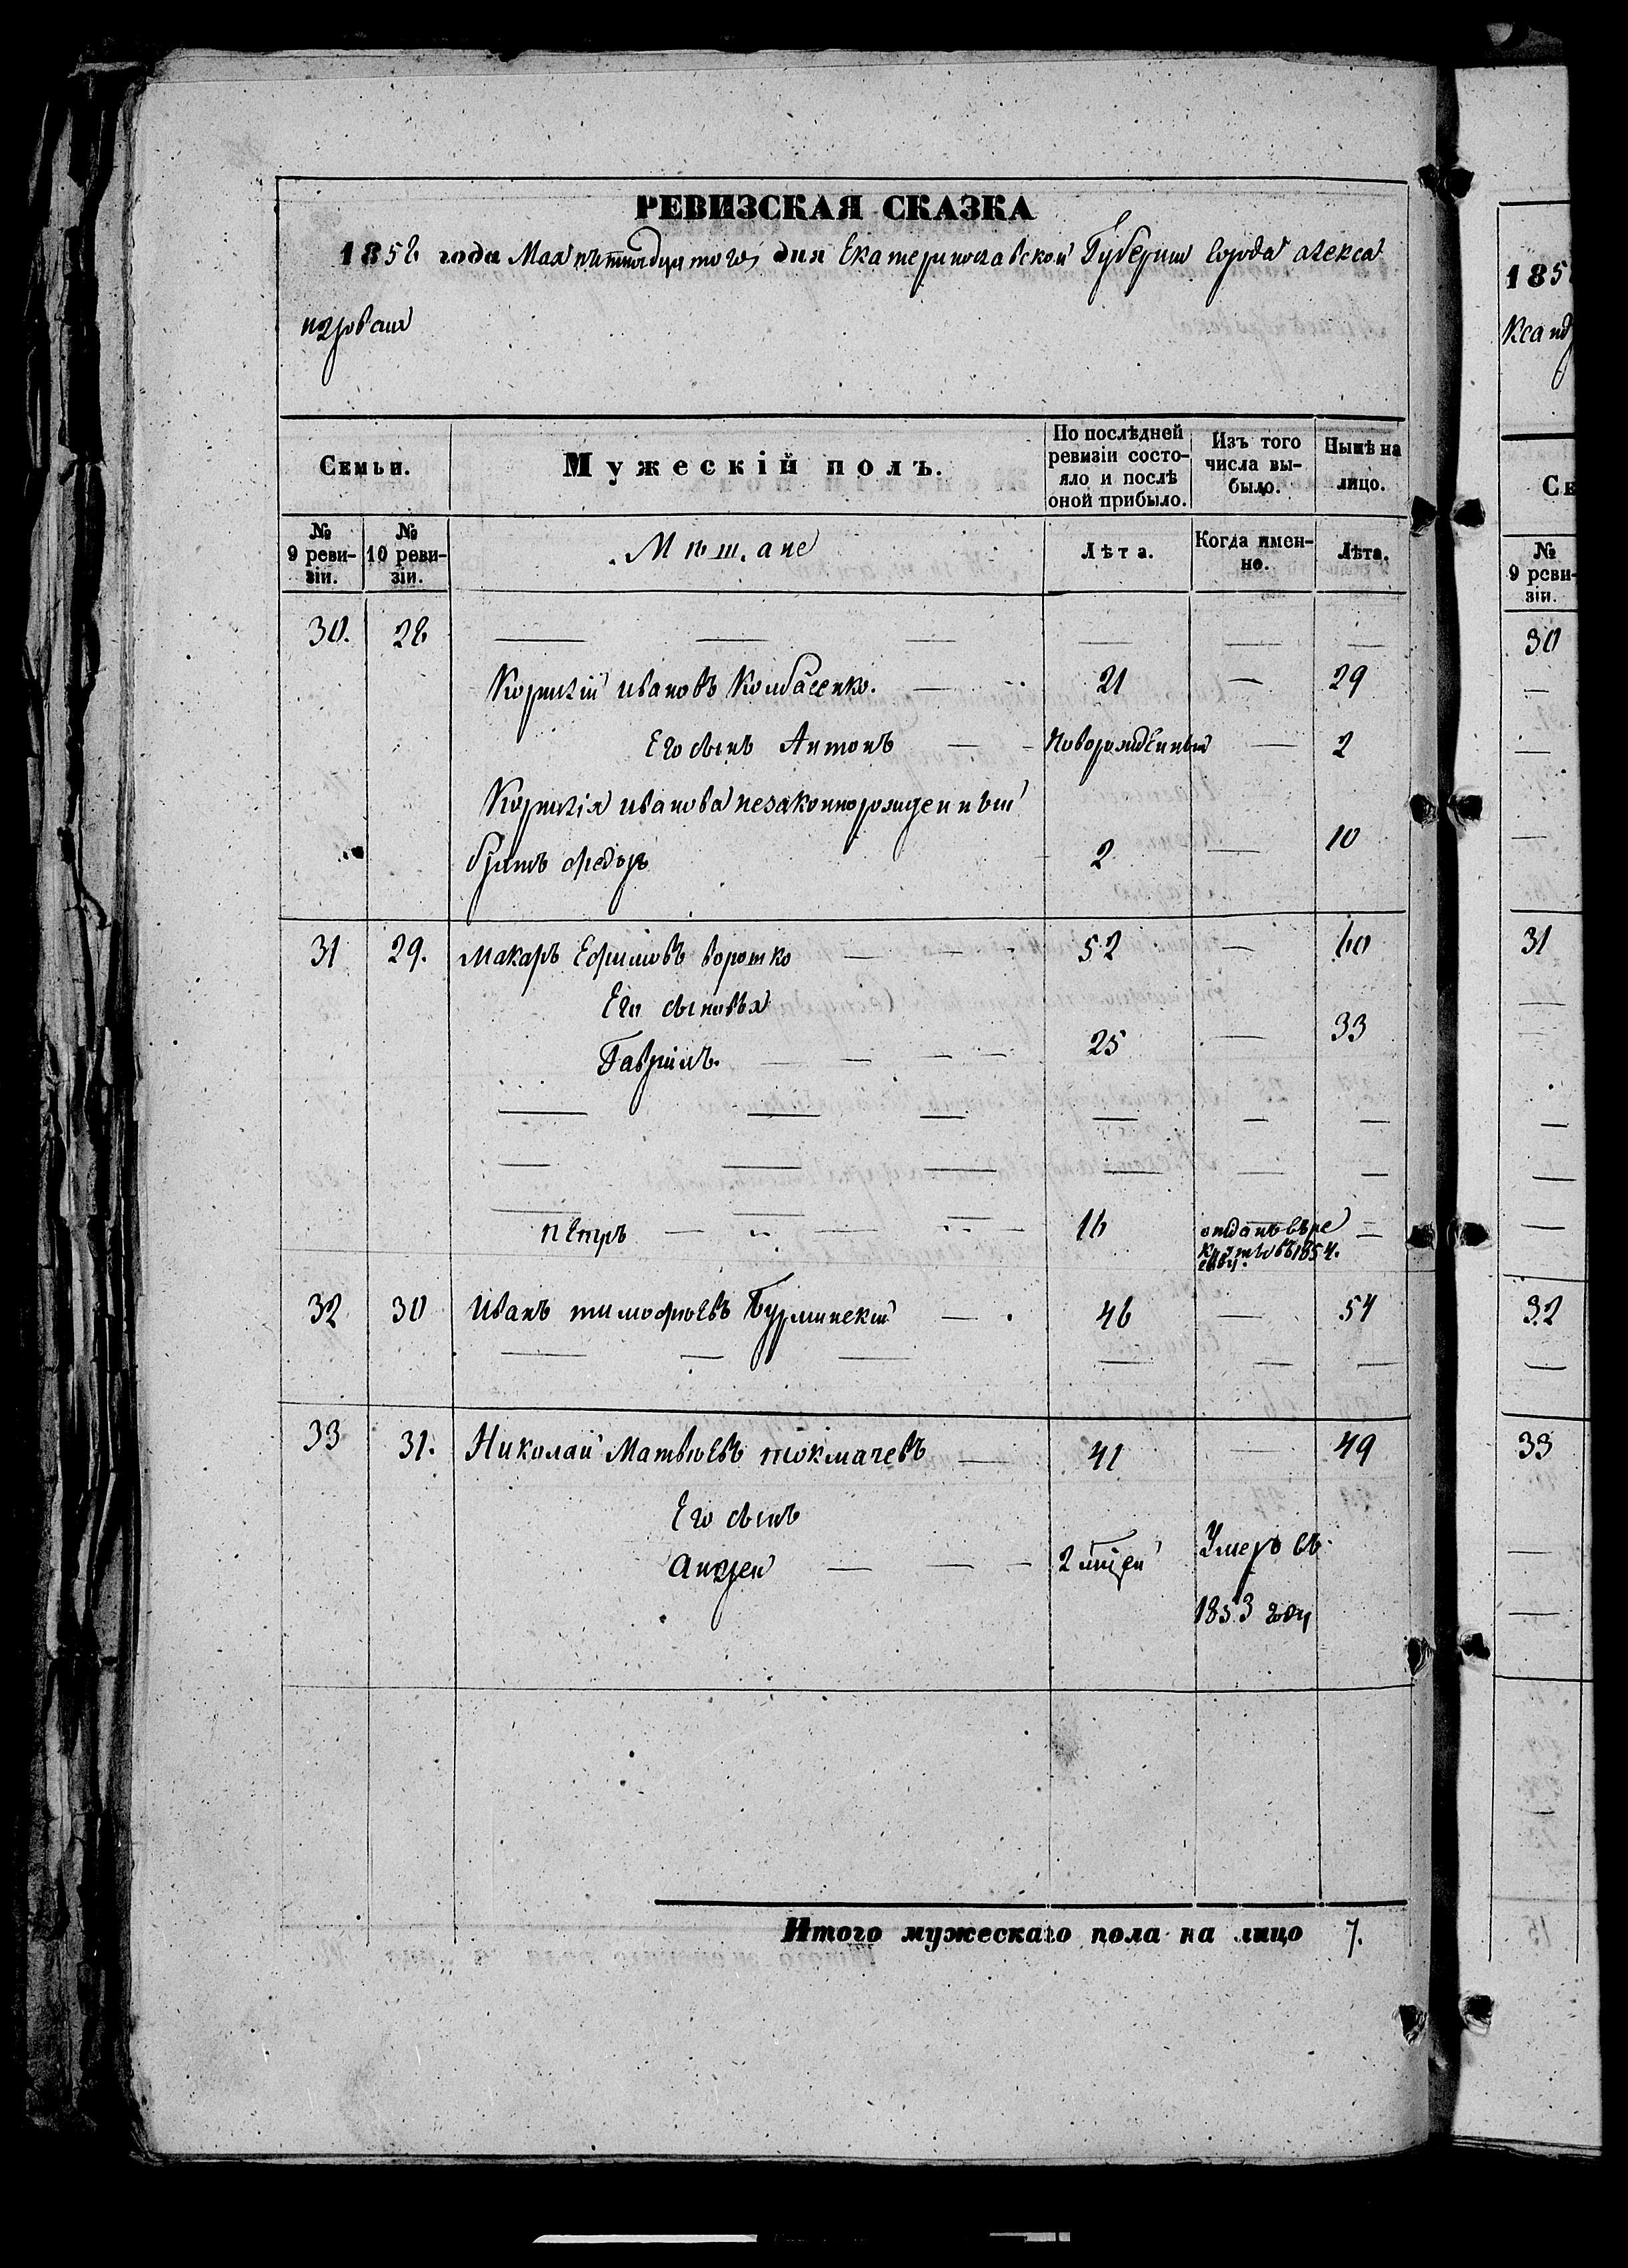 РЕВИЗСКАЯ СКАЗКА
1858 года Мая пятнадцатого дня Екатеринославской Губернии Города Алекса
ндровска
1858
ксанд
Семьи.
Мужескій полъ.
По послѣдней ревизіи состо-
яло и послѣ
оной прибыло.
Изъ того
числа вы-
было.
Нынѣ на
лицо.
№
9 реви-
зіи.
№
10 реви-
зіи.
Мѣщане
Лѣта.
Когда имен-
но.
Лѣта.
№
9 реви-
зіи.
30. 28
30
Корнилій Ивановъ Колбасенко. 21 — 29
Его сынъ Антонъ Новорожденный — 2
Корнилія Иванова незаконнорожденный
братъ Федоръ 2 — 10
31 29. Макаръ Ефимовъ Воротко 52 — 60 31
Его сыновья
Гаврилъ. 25 — 33
Петръ 16 отданъ въ ре
круты въ 1854.
году.
32 30 Иванъ Тимофѣевъ Бурлинскій 46 — 54 32
33 31. Николай Матвѣевъ Токмачевъ 41 — 49 33
Его сынъ
Андрей 2 Умеръ въ
1853 году
Итого мужескаго пола на лицо 7.